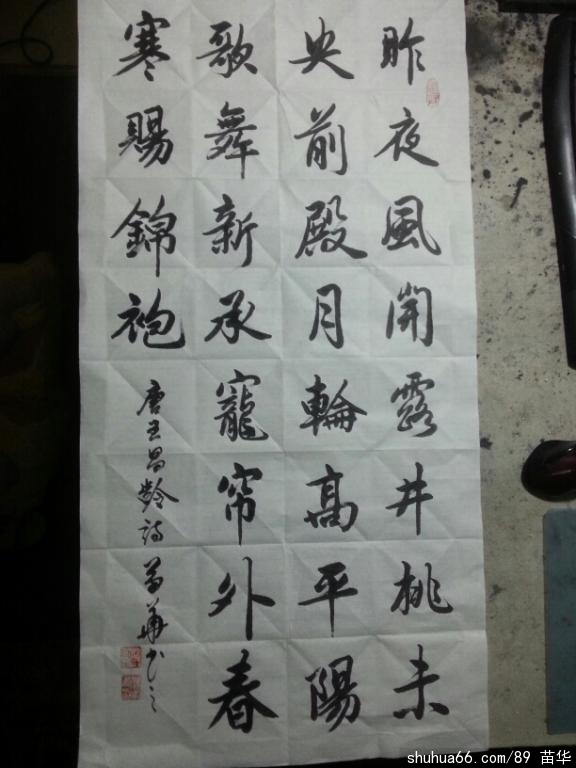 昨夜風開露井桃未
央前殿月輪高平陽
歌舞新承寵帘外春
寒賜錦袍
唐王昌齡詩苗華书之
shuhua66.com/89 苗华